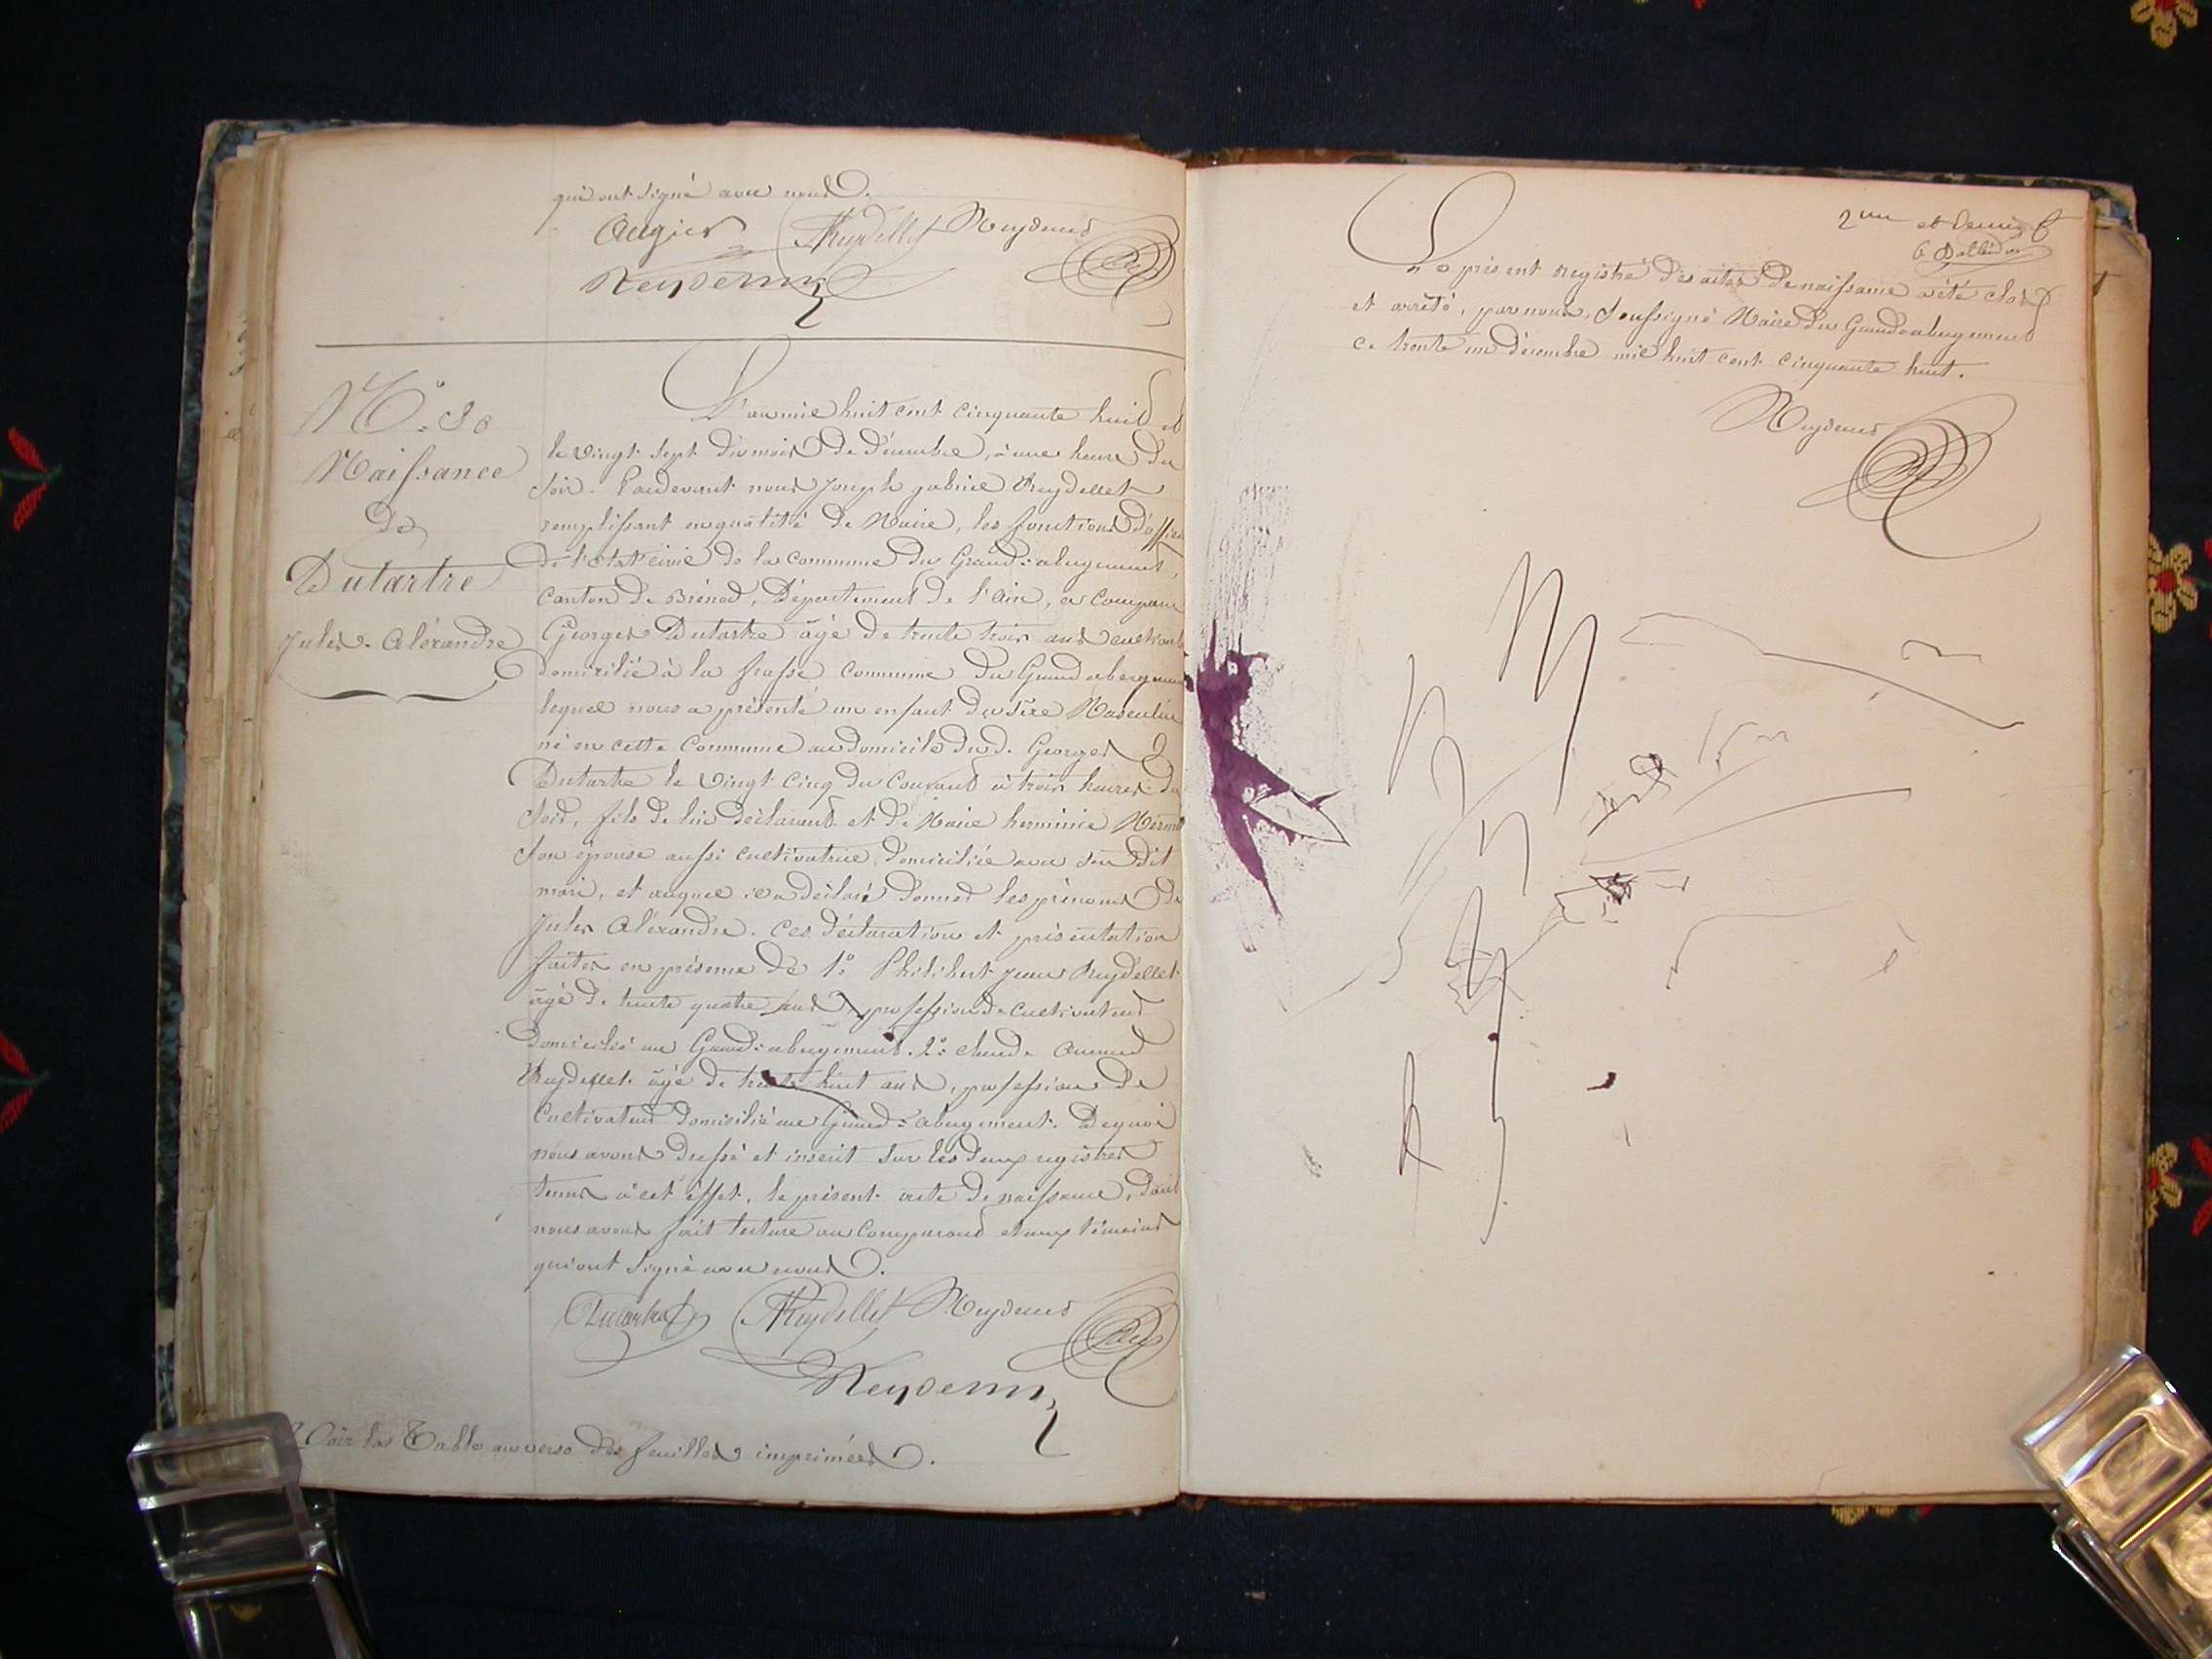 qui ont signé avec nous.
Augier Reydellet Reydellet
Reydellet
N.° 30
Naissance
de
Dutartre
Jules-Aléxandre
L'an mil huit cent cinquante huit et
le vingt sept du mois de décembre, à une heure du
soir. Pardevant nous Joseph gabriel Reydellet
remplissant en qualité de Maire, les fonctions d'officier
de l'Etat civil de la commune du Grand=abergement,
canton de Brénod, Département de l'Ain, a comparu
Georges Dutartre âgé de trente trois ans cultivateur
domicilié à la frasse commune du Grand abergement
lequel nous a présenté un enfant du séxe Masculin
né en cette Commune au domicile dud. Georges
Dutartre le vingt cinq du courant à trois heures du
soir, fils de lui déclarant et de Marie herminie
son épouse aussi cultivatrice, domiciliée avec son dit
mari, et auquel il a déclaré donner les prénoms de
Jules Aléxandre. Ces déclaration et présentation
faites en présence de 1.° Philibert Jean Reydellet
âgé de trente quatre ans, profession de cultivateur
domicilié au Grand=abergement. 2.° Claude
Reydellet âgé de trente huit ans, profession de
Cultivateur domicilié au Grand=abergement. De quoi
nous avons dressé et inscrit sur les deux registres
tenus à cet éffet, le présent acte de naissance, dont
nous avons fait lecture au Comparant et aux témoins
qui ont signé avec nous.
Dutartre Reydellet Reydellet
Reydellet
Voir la Table au verso des feuilles imprimées.
et dernier f
Le présent registre des actes de naissance a été clos
et arrêté, par nous, soussigné Maire du Grand=abergement
ce trente un décembre mil huit cent cinquante huit.
Reydellet